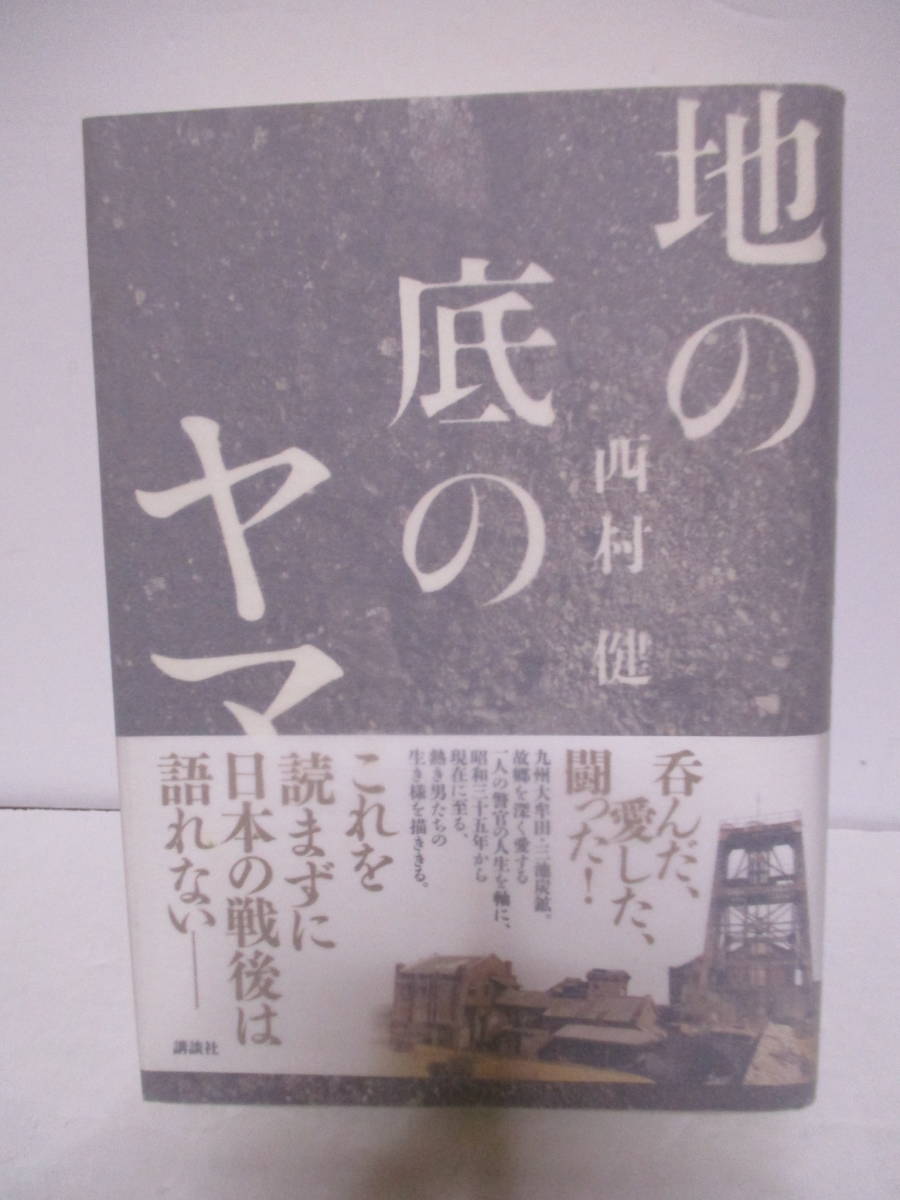 地の
底の
ヤマ
西村 健
呑んだ、
愛した、
闘った!
九州大牟田・三池炭鉱。
故郷を深く愛する
一人の警官の人生を軸に、
昭和三十五年から
現在に至る、
熱き男たちの
生き様を描ききる。
これを
読まずに
日本の戦後は
語れない――
講談社